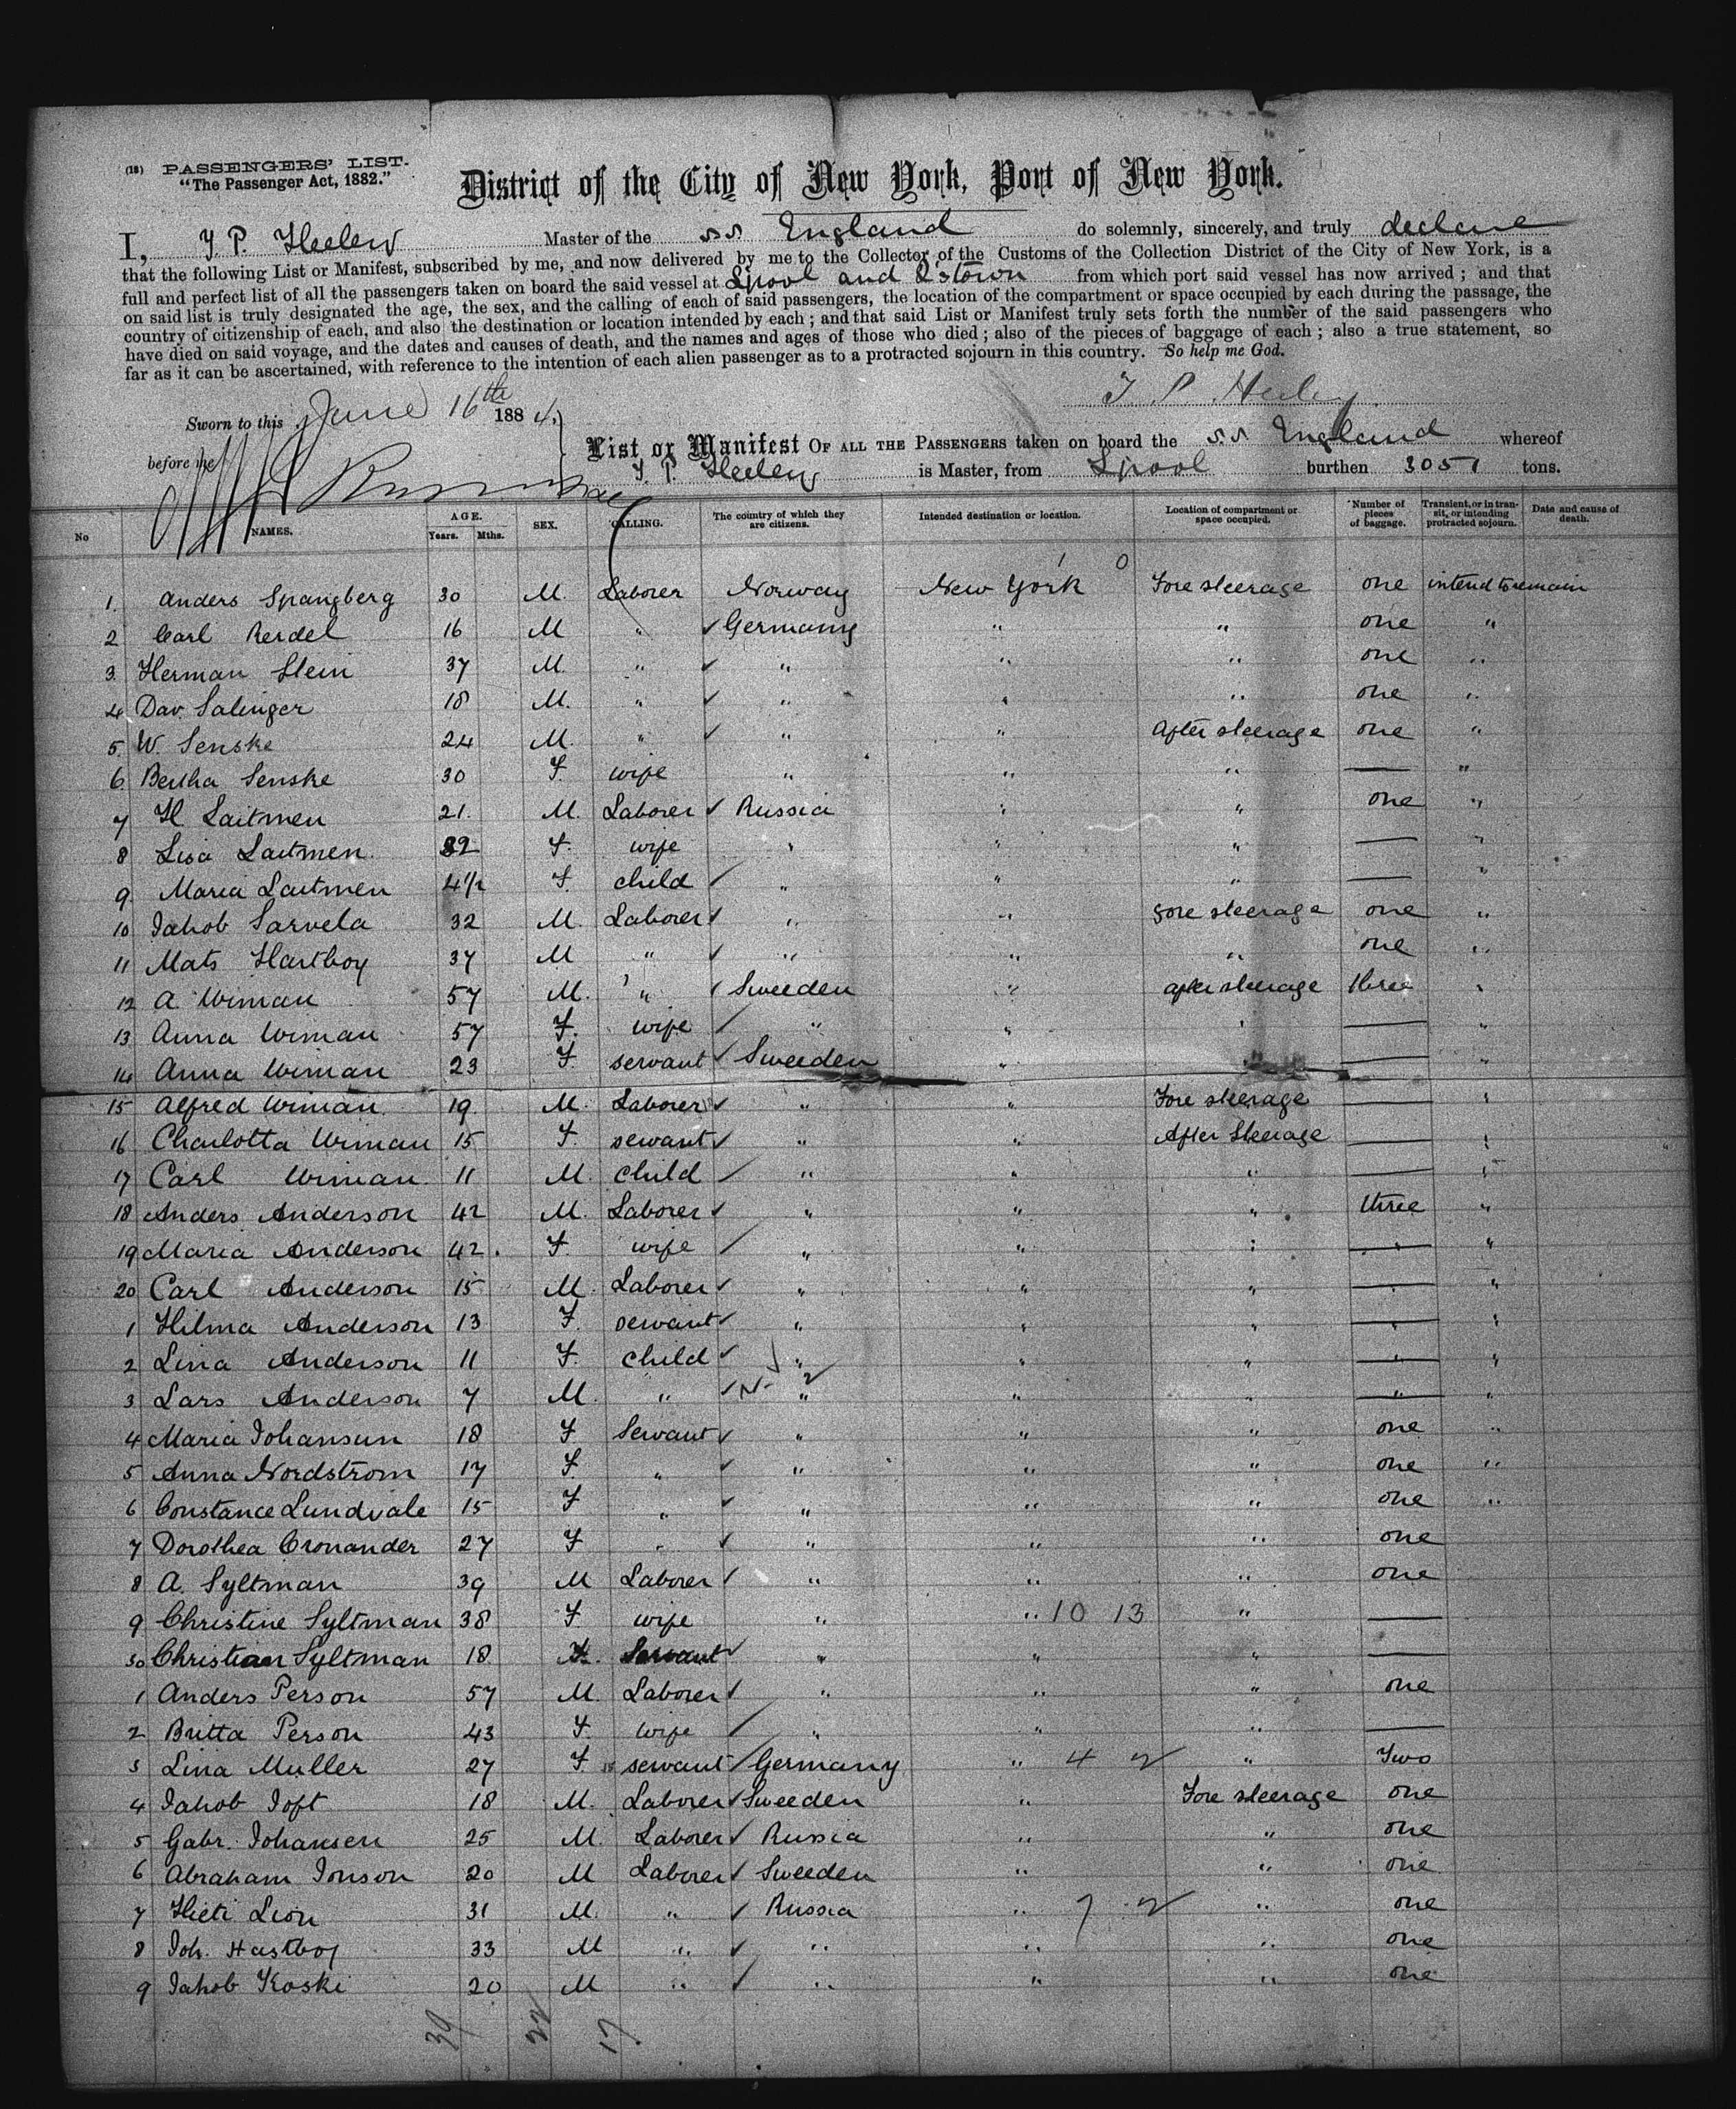 (18) PASSENGERS' LIST.
"The Passenger Act, 1882."
District of the City of New York, Port of New York.
I, Master of the S.S. England do solemnly, sincerely, and truly declare
that the following List or Manifest, subscribed by me, and now delivered by me to the Collector of the Customs of the Collection District of the City of New York, is a
full and perfect list of all the passengers taken on board the said vessel at L'pool and Q'stown from which port said vessel has now arrived; and that
on said list is truly designated the age, the sex, and the calling of each of said passengers, the location of the compartment or space occupied by each during the passage, the
country of citizenship of each, and also the destination or location intended by each; and that said List or Manifest truly sets forth the number of the said passengers who
have died on said voyage, and the dates and causes of death, and the names and ages of those who died; also of the pieces of baggage of each; also a true statement, so
far as it can be ascertained, with reference to the intention of each alien passenger as to a protracted sojourn in this country. So help me God.
Sworn to this June 16th 1884.
before me
List or Manifest OF ALL THE PASSENGERS taken on board the S.S. England whereof
is Master, from L'pool burthen 3051 tons.
No NAMES. AGE. Years. Mths. SEX. CALLING. The country of which they are citizens. Intended destination or location. Location of compartment or space occupied. Number of pieces of baggage. Transient, or in transit, or intending protracted sojourn. Date and cause of death.
1 0
1. Anders Spangberg 30 M. Laborer Norway New York Fore steerage one intend to remain
2 Carl Rerdel 16 M " ✓ Germany " " one "
3. Herman Stein 37 M. " ✓ " " " one "
4 Dav. Salinger 18 M. " ✓ " " " one "
5. W. Senske 24 M. " ✓ " " After steerage one "
6 Bertha Senske 30 F. wife " " " — "
7 H Laitmen 21. M. Laborer ✓ Russia " " one "
8 Lisa Laitmen F. wife " " " — "
9. Maria Laitmen 4½ F. child ✓ " " " — "
10 Jakob Sarvela 32 M. Laborer ✓ " " Fore steerage one "
11 Mats Hastboy 37 M " ✓ " " " one "
12 A Wiman 57 M. " ✓ Sweeden " after steerage three "
13 Anna Wiman 57 F. wife ✓ " " " — "
14 Anna Wiman 23 F. servant ✓ Sweeden " — "
15 Alfred Wiman 19 M. Laborer ✓ " " Fore steerage — "
16 Charlotta Wiman 15 F. servant ✓ " " After Steerage — "
17 Carl Wiman 11 M. child ✓ " " " — "
18 Anders Anderson 42 M. Laborer ✓ " " " three "
19 Maria Anderson 42. F. wife ✓ " " " — "
20 Carl Anderson 15 M. Laborer ✓ " " " — "
1 Hilma Anderson 13 F. servant ✓ " " " — "
2 Lina Anderson 11 F. child ✓ " " " — "
3 Lars Anderson 7 M. " ✓ " " " — "
4 Maria Johansun 18 F Servant ✓ " " " one "
5 Anna Nordstrom 17 F. " ✓ " " " one "
6 Constance Lundvale 15 F " ✓ " " " one "
7 Dorothea Cronander 27 F " ✓ " " " one
8 A. Syltman 39 M Laborer ✓ " " " one
9 Christine Syltman 38 F wife " " 10 13 " —
30 Christian Syltman 18 Servant ✓ " " " —
1 Anders Person 57 M. Laborer ✓ " " " one
2 Britta Person 43 F. wife ✓ " " " —
3 Lina Muller 27 F servant ✓ Germany " 4 2 " Two
4 Jakob Joft 18 M. Laborer ✓ Sweeden " Fore steerage one
5 Gabr. Johansen 25 M. Laborer ✓ Russia " " one
6 Abraham Jonson 20 M Laborer ✓ Sweeden " " one
7 Hieti Lion 31 M. " ✓ Russia " 7 2 " one
8 Joh. Hastboy 33 M " ✓ " " " one
9 Jakob Koski 20 M " ✓ " " " one
39 22 17